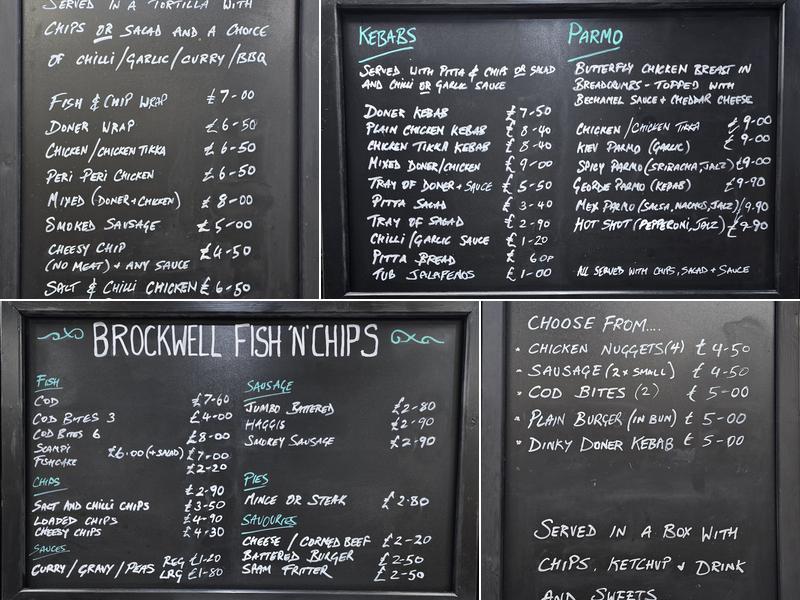 SERVED IN A TORTILLA WITH
CHIPS OR SALAD AND A CHOICE
OF CHILLI/GARLIC/CURRY/BBQ
FISH & CHIP WRAP £7-00
DONER WRAP £6-50
CHICKEN/CHICKEN TIKKA £6-50
PERI PERI CHICKEN £6-50
MIXED (DONER+CHICKEN) £8-00
SMOKED SAUSAGE £5-00
CHEESY CHIP £4-50
(NO MEAT) + ANY SAUCE
SALT & CHILLI CHICKEN £6-50
KEBABS
SERVED WITH PITTA & CHIPS OR SALAD
AND CHILLI OR GARLIC SAUCE
DONER KEBAB £7-50
PLAIN CHICKEN KEBAB £8-40
CHICKEN TIKKA KEBAB £8-40
MIXED DONER/CHICKEN £9-00
TRAY OF DONER + SAUCE £5-50
PITTA SALAD £3-40
TRAY OF SALAD £2-90
CHILLI/GARLIC SAUCE £1-20
PITTA BREAD £ 60P
TUB JALAPENOS £1-00
PARMO
BUTTERFLY CHICKEN BREAST IN
BREADCRUMBS - TOPPED WITH
BECHAMEL SAUCE + CHEDDAR CHEESE
CHICKEN/CHICKEN TIKKA £9-00
KIEV PARMO (GARLIC) £9-00
SPICY PARMO (SRIRACHA, JALZ) £9-00
GEORDIE PARMO (KEBAB) £9-90
MEX PARMO (SALSA, NACHOS, JALZ) £9.90
HOT SHOT (PEPPERONI, JALZ) £9-90
ALL SERVED WITH CHIPS, SALAD + SAUCE
BROCKWELL FISH 'N' CHIPS
FISH
COD £7-60
COD BITES 3 £4-00
COD BITES 6 £8-00
SCAMPI £6.00 (+SALAD) £7-00
FISHCAKE £2-20
CHIPS £2-90
SALT AND CHILLI CHIPS £3-50
LOADED CHIPS £4-90
CHEESY CHIPS £4-30
SAUCES
CURRY/GRAVY/PEAS REG £1-20
LRG £1-80
SAUSAGE
JUMBO BATTERED £2-80
HAGGIS £2-90
SMOKEY SAUSAGE £2-90
PIES
MINCE OR STEAK £2-80
SAVOURIES
CHEESE / CORNED BEEF £2-20
BATTERED BURGER £2-50
SPAM FRITTER £2-50
CHOOSE FROM....
• CHICKEN NUGGETS (4) £4-50
• SAUSAGE (2 x SMALL) £4-50
• COD BITES (2) £5-00
• PLAIN BURGER (IN BUN) £5-00
• DINKY DONER KEBAB £5-00
SERVED IN A BOX WITH
CHIPS, KETCHUP & DRINK
AND SWEETS